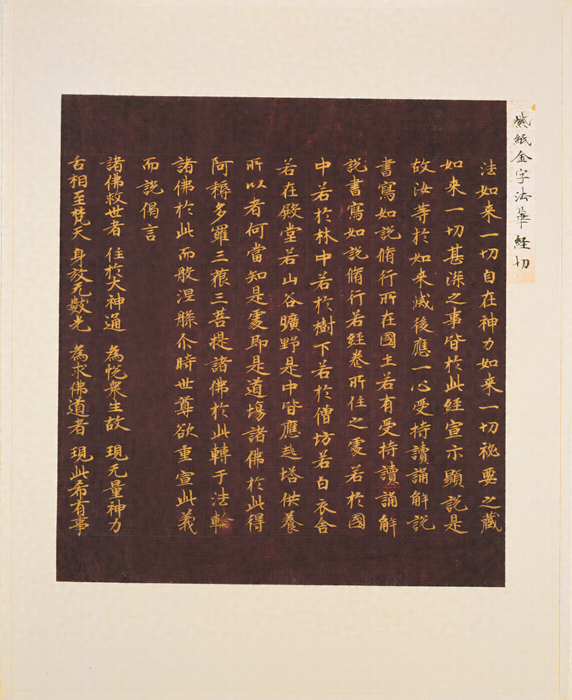 紫紙金字法華経切
法如来一切自在神力如来一切祕要之蔵
如来一切甚深之事皆於此経宣示顯説是
故汝等於如来滅後應一心受持讀誦解説
書寫如説脩行所在國土若有受持讀誦解
説書寫如説脩行若経卷所住之處若於園
中若於林中若於樹下若於僧坊若白衣舎
若在殿堂若山谷曠野是中皆應起塔供養
所以者何當知是處即是道場諸佛於此得
阿耨多羅三藐三菩提諸佛於此轉于法輪
諸佛於此而般涅槃尒時世尊欲重宣此義
而説偈言
諸佛救世者 住於大神通 為悦衆生故 現无量神力
舌相至梵天 身放无數光 為求佛道者 現此希有事